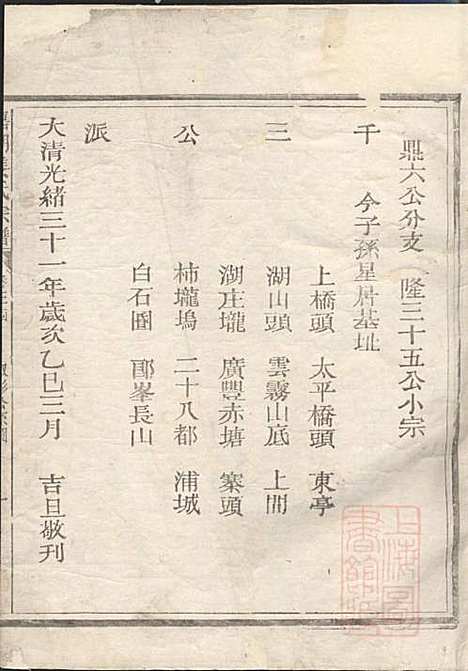 鼎六公分支 隆三十五公小宗
千 今子孫星居基址
上橋頭 太平橋頭 東亭
三 湖山頭 雲霧山底 上間
湖庄壠 廣豐赤塘 寨頭
公 柿壠塢 二十八都 浦城
白石圕 郿峯長山
派
大清光緒三十一年歲次乙巳三月 吉旦敬刊
上海圖書館藏